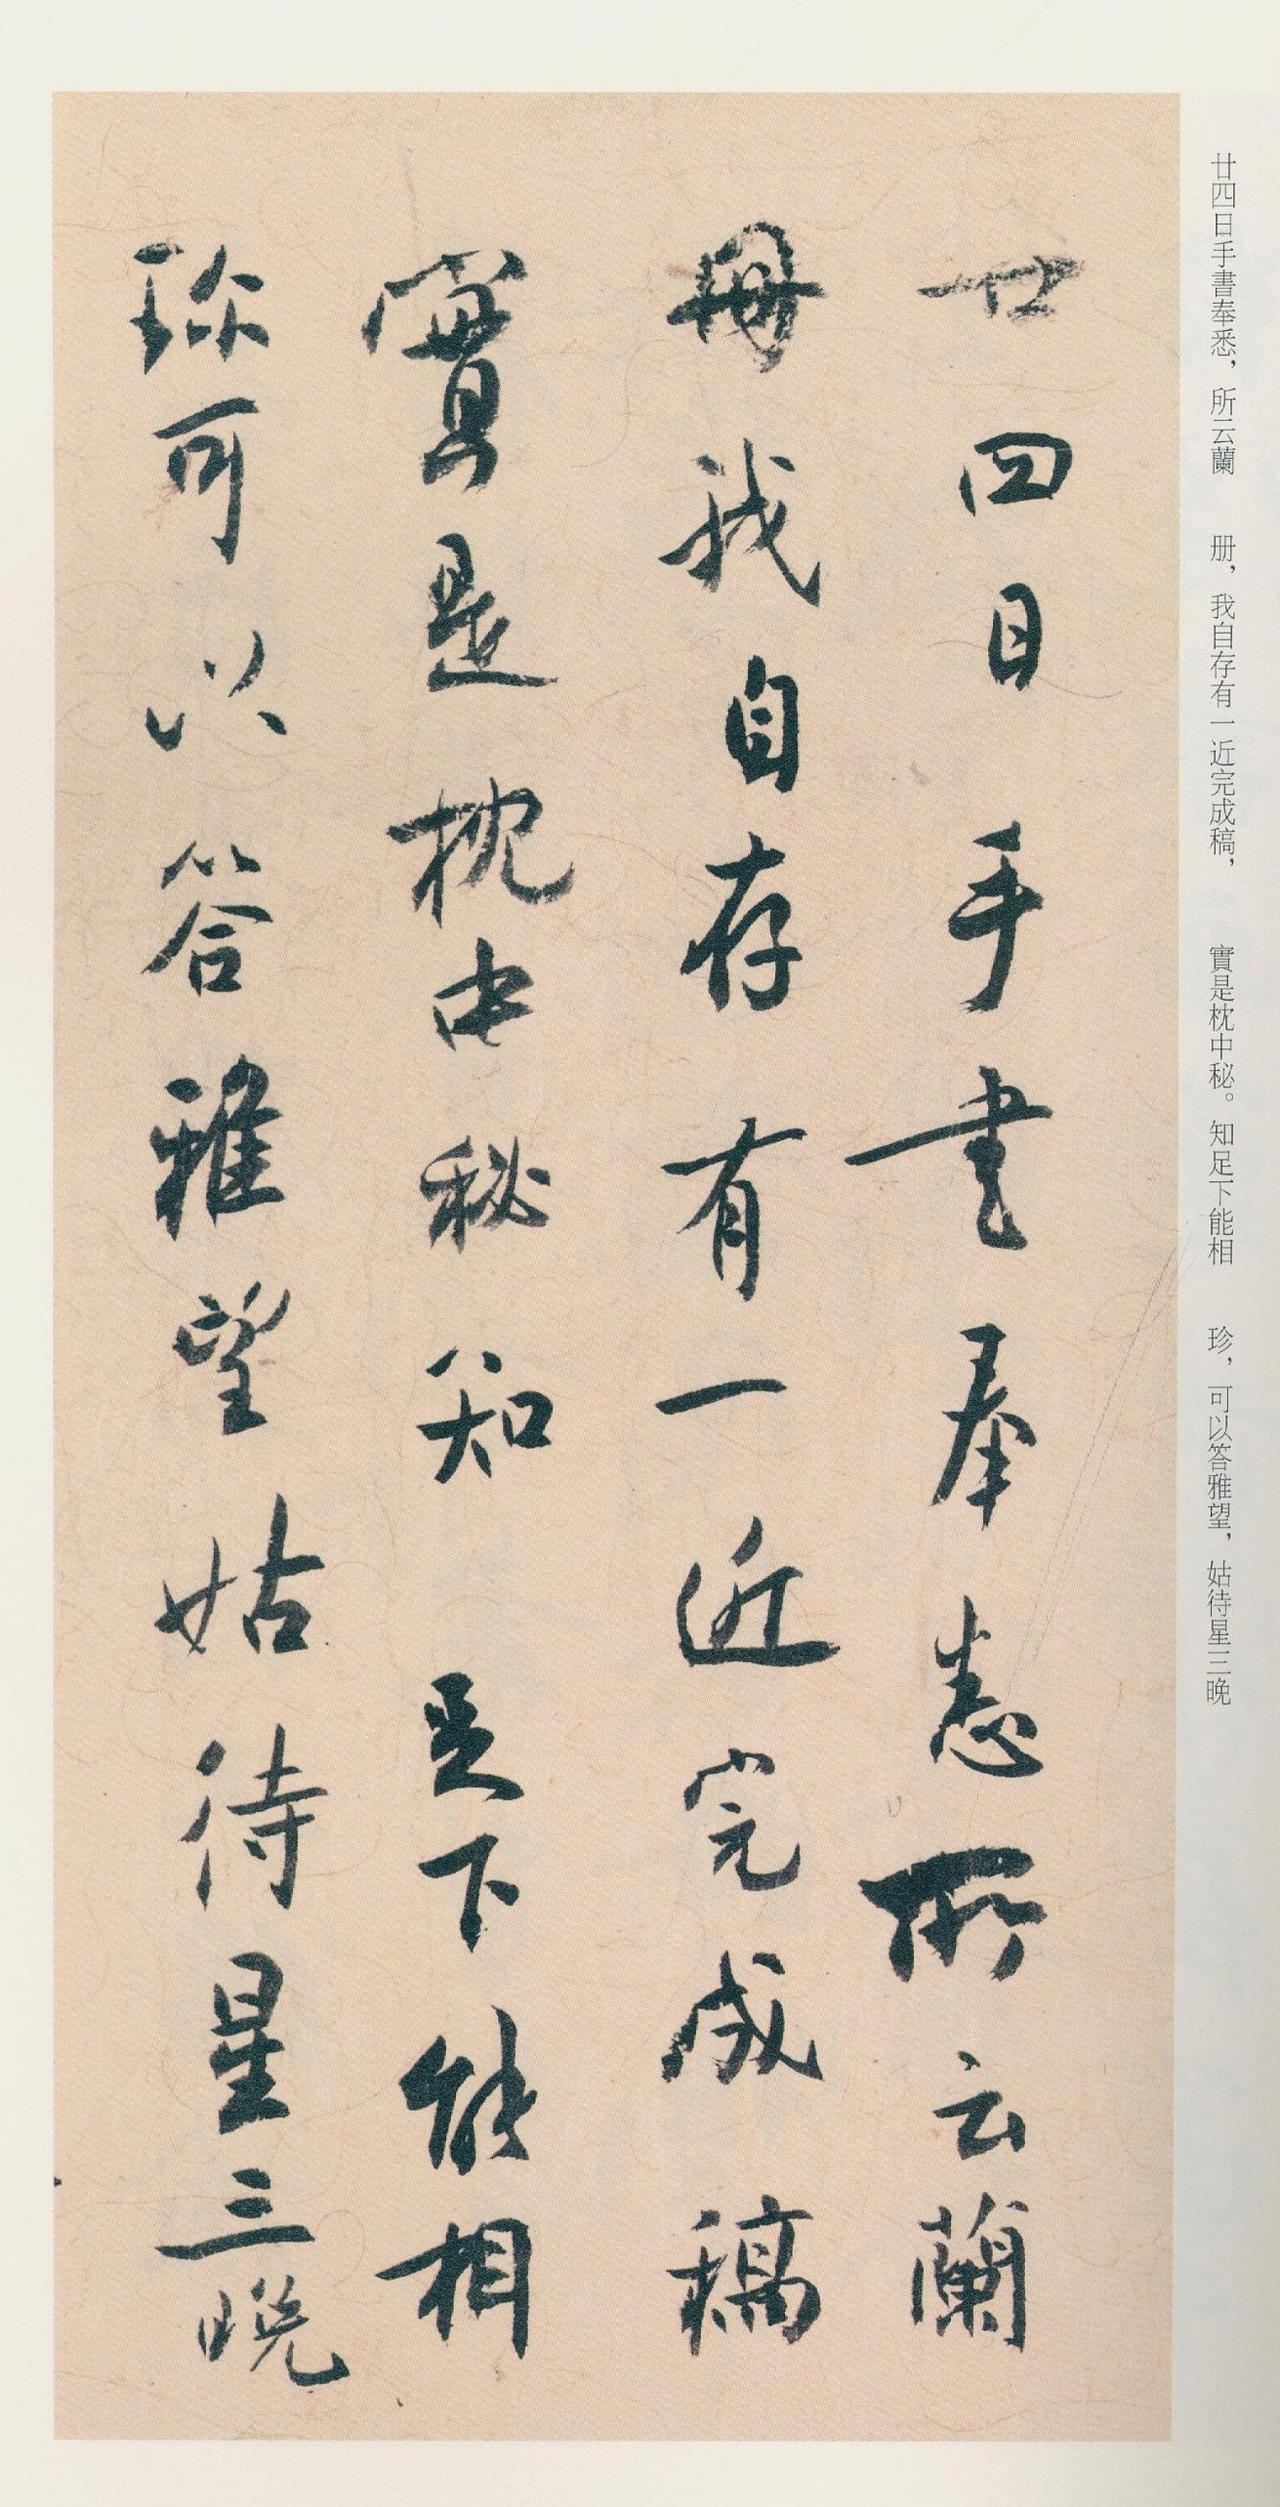 廿四日手書奉悉，所云蘭　册，我自存有一近完成稿，　實是枕中秘。知足下能相　珍，可以答雅望，姑待星三晚
廿四日手書奉悉所云蘭
册我自存有一近完成稿
實是枕中秘知足下能相
珎可以答雅望姑待星三晚